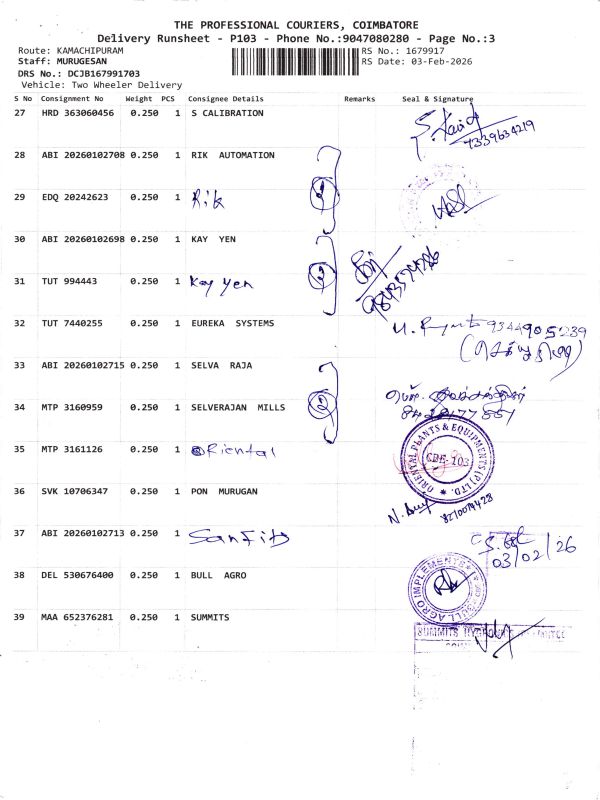 THE PROFESSIONAL COURIERS, COIMBATORE
Delivery Runsheet - P103 - Phone No.:9047080280 - Page No.:3
Route: KAMACHIPURAM RS No.: 1679917
Staff: MURUGESAN RS Date: 03-Feb-2026
DRS No.: DCJB167991703
Vehicle: Two Wheeler Delivery
S No Consignment No Weight PCS Consignee Details Remarks Seal & Signature
27 HRD 363060456 0.250 1 S CALIBRATION
7339634219
28 ABI 20260102708 0.250 1 RIK AUTOMATION
29 EDQ 20242623 0.250 1 Rik
30 ABI 20260102698 0.250 1 KAY YEN
31 TUT 994443 0.250 1 Kay yen
32 TUT 7440255 0.250 1 EUREKA SYSTEMS 9344905239
33 ABI 20260102715 0.250 1 SELVA RAJA
34 MTP 3160959 0.250 1 SELVERAJAN MILLS
35 MTP 3161126 0.250 1 Oriental
ORIENTAL PLANTS & EQUIPMENTS (P) LTD.
CBE-103
36 SVK 10706347 0.250 1 PON MURUGAN
37 ABI 20260102713 0.250 1 Sanfits
03/02/26
38 DEL 530676400 0.250 1 BULL AGRO
BULL AGRO IMPLEMENTS
39 MAA 652376281 0.250 1 SUMMITS
SUMMITS LIMITED